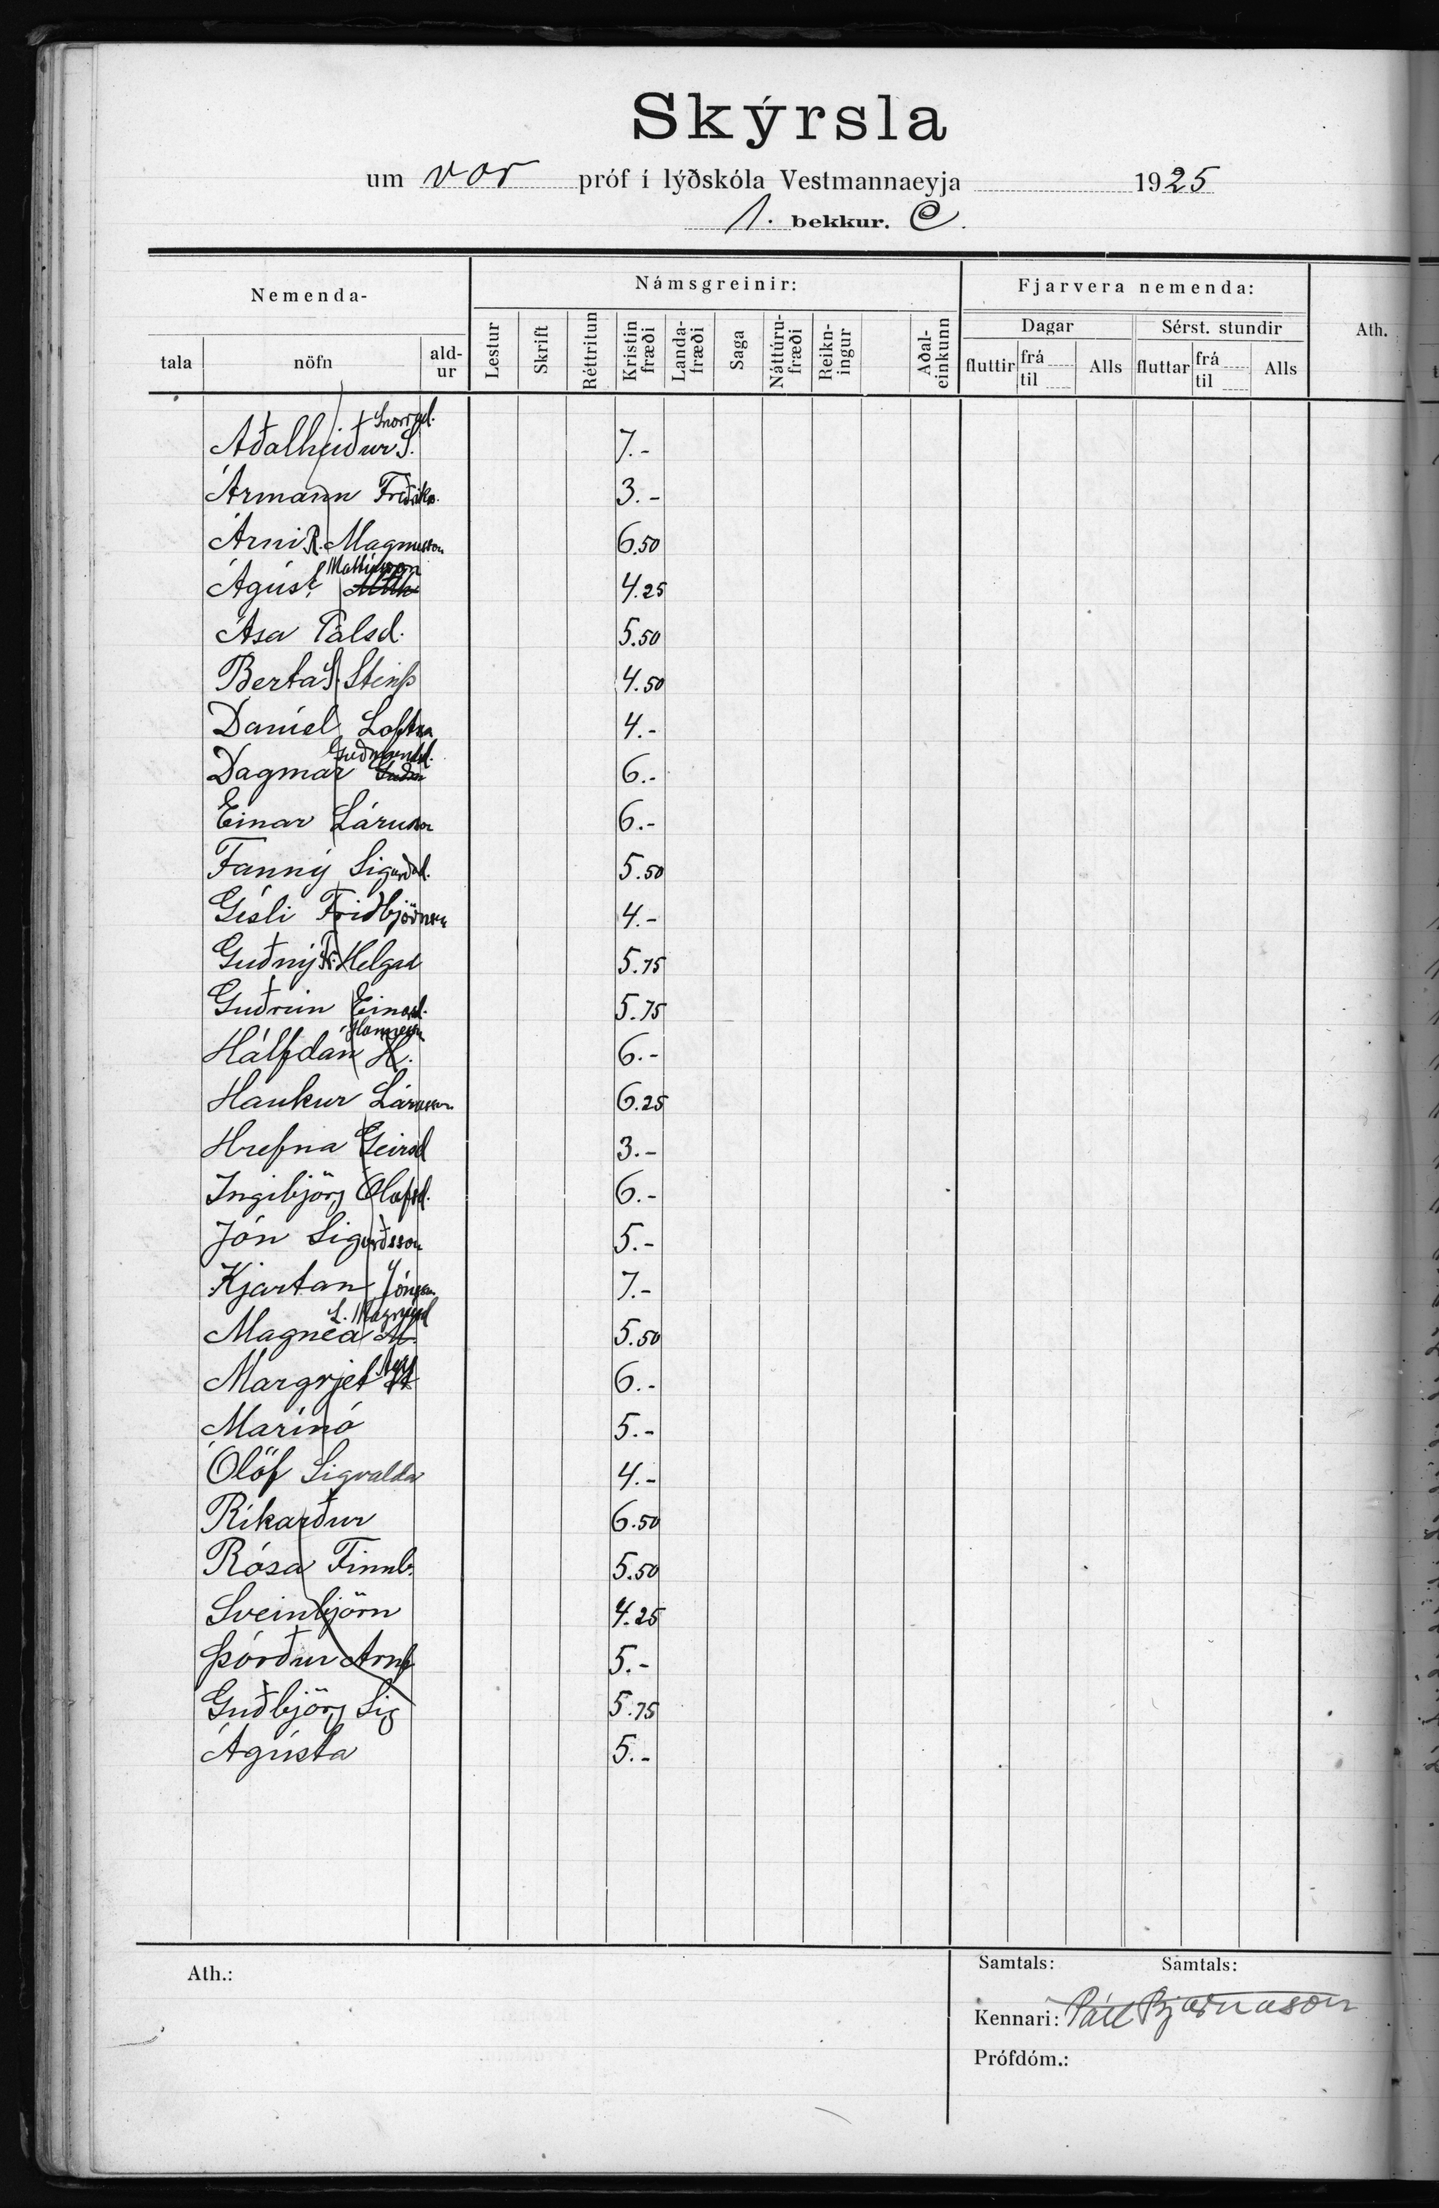 Skýrsla
um vor próf í lýðskóla Vestmannaeyja 1925
1. bekkur. C.
Nemenda-
Námsgreinir:
Fjarvera nemenda:
Ath.
tala nöfn ald-ur Lestur Skrift Réttritun Kristin fræði Landa-fræði Saga Náttúru-fræði Reikn-ingur Aðal-einkunn
Dagar Sérst. stundir
fluttir frá til Alls fluttar frá til Alls
Snorrad.
Aðalheiður S. 7.-
Ármann Friðriks. 3.-
Árni R. Magnusson 6.50
Mattiasson
Ágúst 4.25
Ása Pálsd. 5.50
Berta S. Steinþ 4.50
Daníel Loftss 4.-
Guðmundsd.
Dagmar Guðm 6.-
Einar Lárusson 6.-
Fanný Sigurðard. 5.50
Gísli Friðbjörnsson 4.-
Guðný Fr. Helgad 5.75
Guðrún Einarsd. 5.75
Hannesson
Hálfdan H. 6.-
Haukur Lárusson 6.25
Hrefna Geirsd 3.-
Ingibjörg Ólafsd. 6.-
Jón Sigurðsson 5.-
Kjartan Jónsson 7.-
L. Magnúsd
Magnea M. 5.50
Margrjet 6.-
Marinó 5.-
Ólöf Sigvalda 4.-
Ríkarður 6.50
Rósa Finnb. 5.50
Sveinbjörn 4.25
Þórður Arnf 5.-
Guðbjörg Sig 5.75
Ágústa 5.-
Ath.:
Samtals: Samtals:
Kennari: Páll Bjarnason
Prófdóm.: